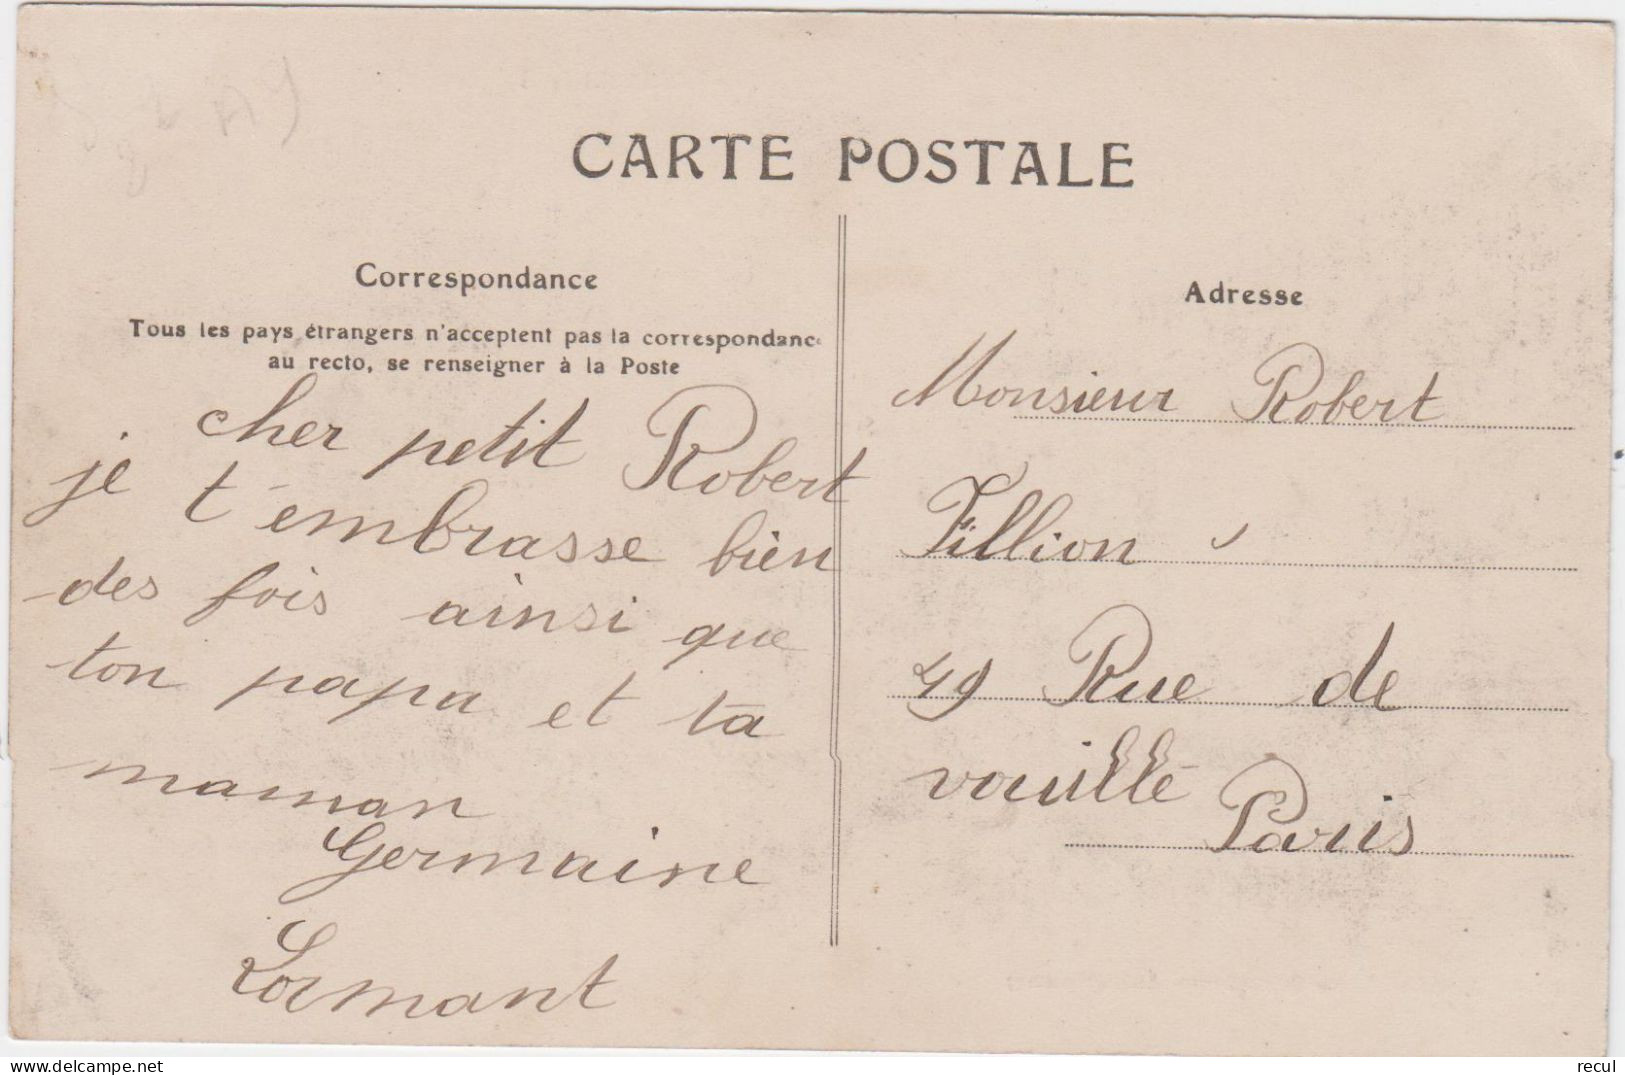 CARTE POSTALE
Correspondance
Tous les pays étrangers n'acceptent pas la correspondance
au recto, se renseigner à la Poste
cher petit Robert
je t'embrasse bien
des fois ainsi que
ton papa et ta
maman
Germaine
Lormant
Adresse
Monsieur Robert
Fillion
49 Rue de
vouillé
Paris
delcampe.net
recul